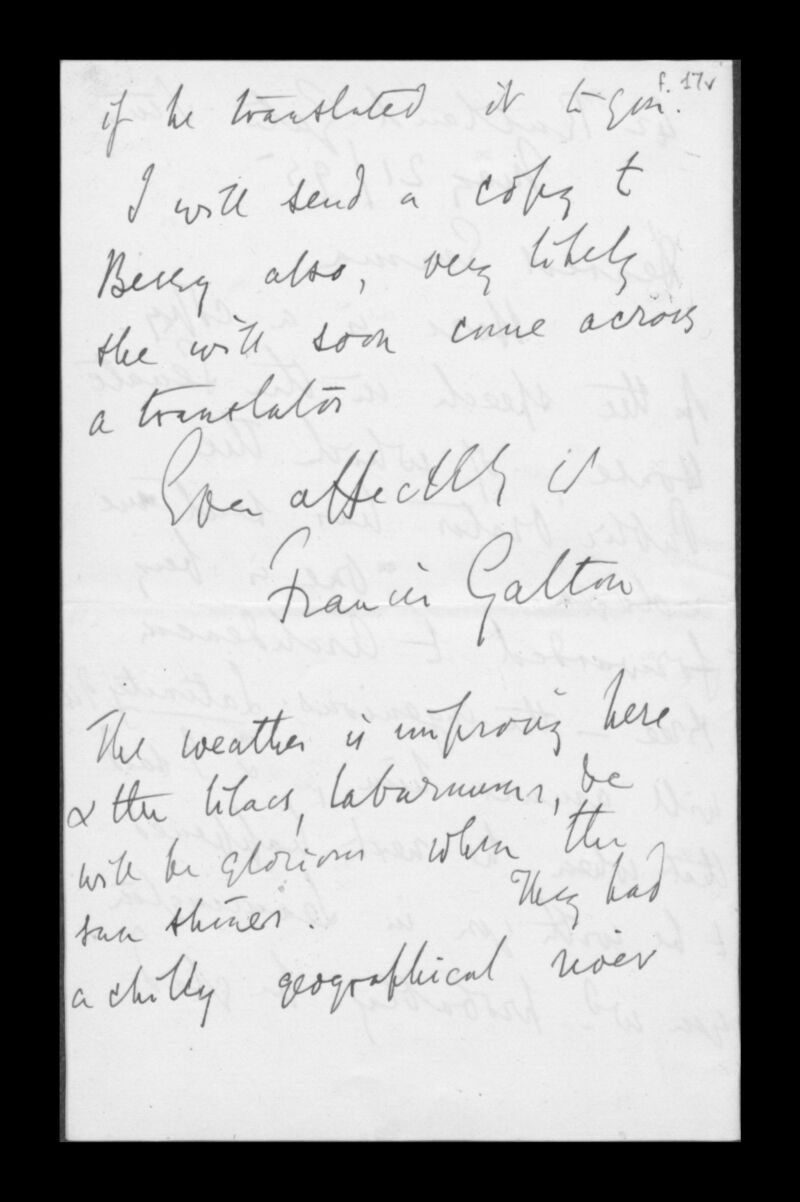 f. 17v
if he translated it to you.
I will send a copy to
Bessy also, very likely
she will soon come across
a translator
Ever affectly
Francis Galton
The weather is improving here
& the lilacs, laburnums, &c
will be glorious when the
sun shines. They had
a chilly geographical river